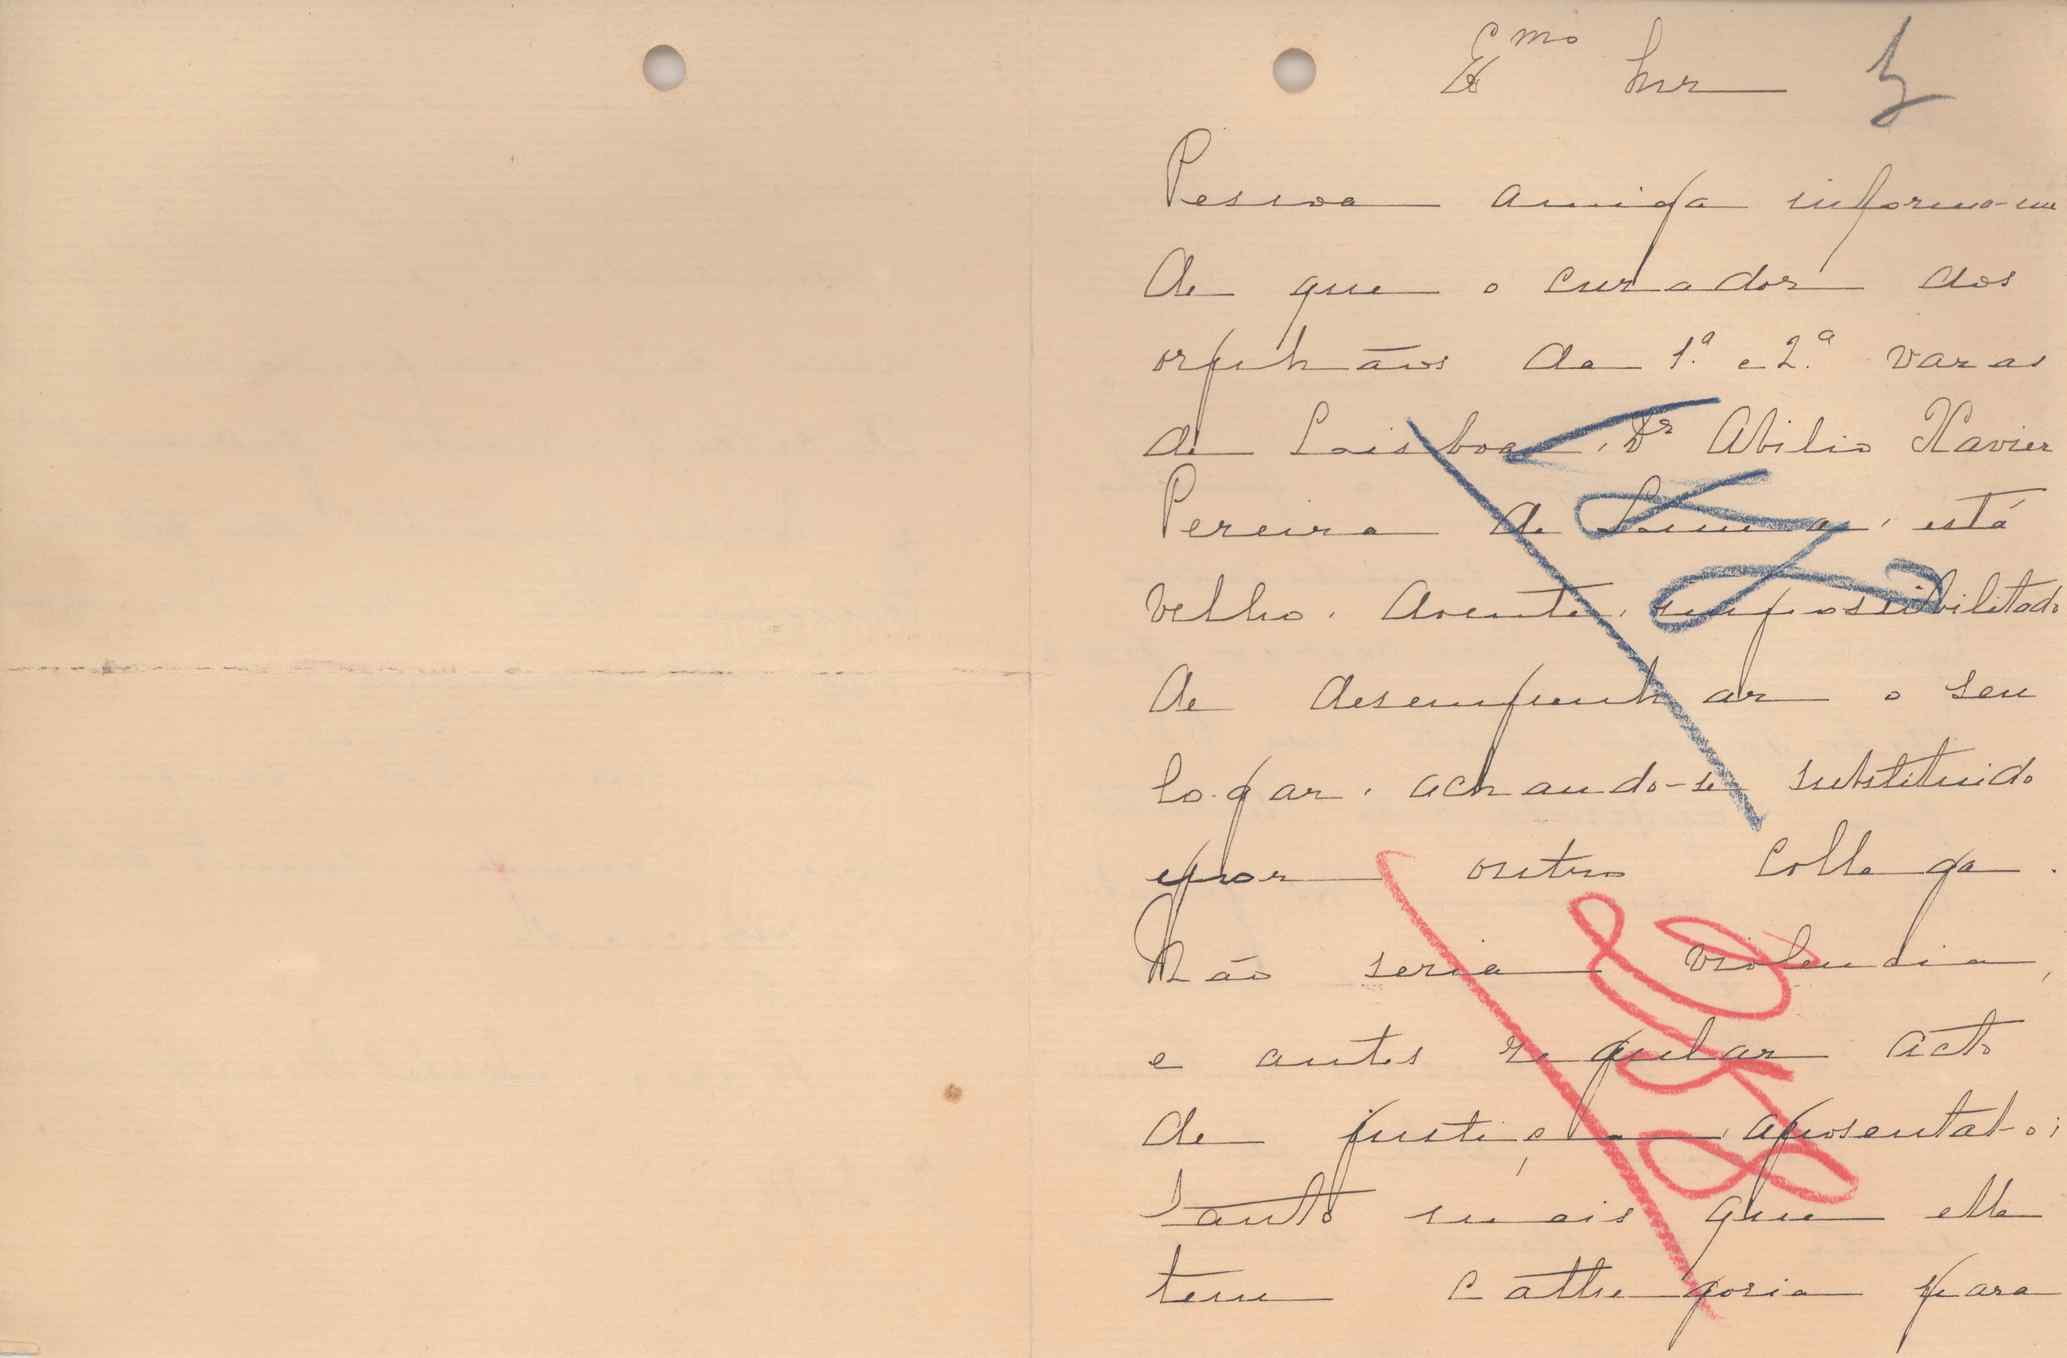 Exmo Snr
Pessoa amiga informa-me
de que o curador dos
orphãos da 1.ª e 2.ª varas
de Lisboa, Dr Abilio Xavier
Pereira de Sousa, está
velho, doente, impossibilitado
de desempenhar o seu
logar, achando-se substituido
por outro collega.
Não seria violencia,
e antes regular acto
de justiça, aposental-o;
tanto mais que elle
tem cathegoria para